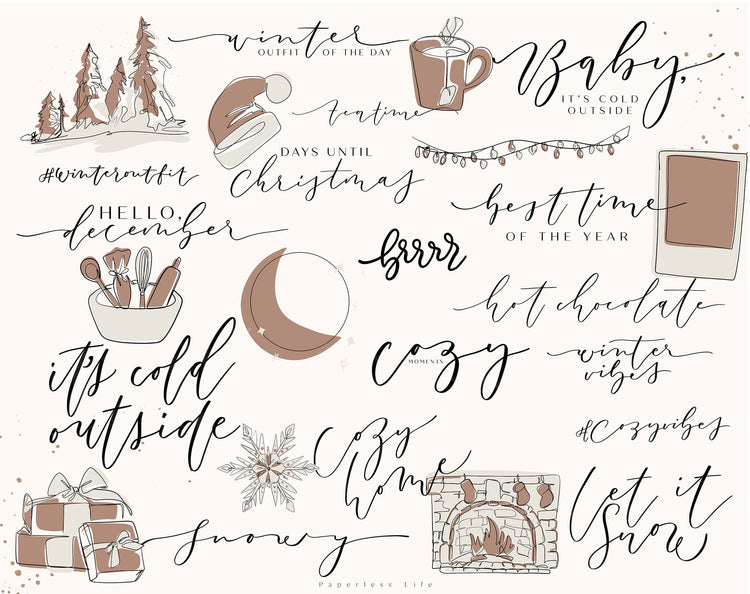 winter
OUTFIT OF THE DAY
Baby,
IT'S COLD
OUTSIDE
teatime
DAYS UNTIL
Christmas
#winteroutfit
best time
OF THE YEAR
HELLO,
december
brrrr
hot chocolate
cozy
MOMENTS
winter
vibes
it's cold
outside
#Cozyvibes
Cozy
home
let it
snow
snowy
Paperless Life